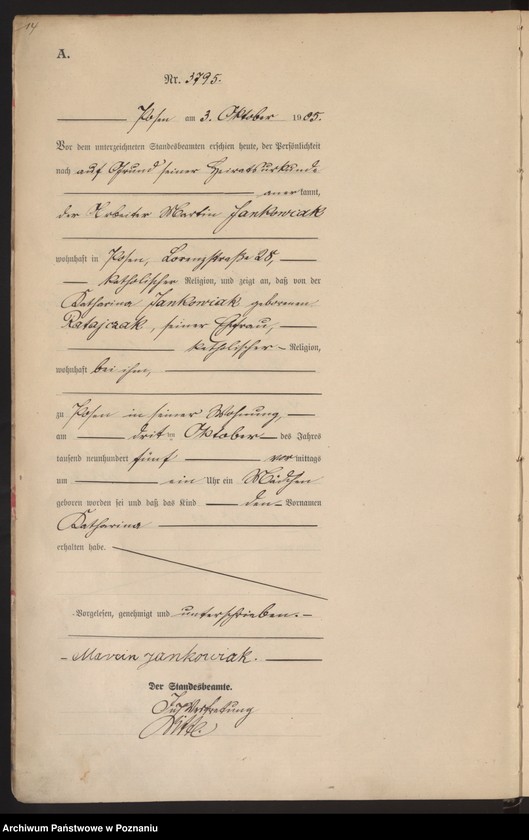 14
A.
Nr. 3795.
Posen am 3. Oktober 1905.
Vor dem unterzeichneten Standesbeamten erschien heute, der Persönlichkeit
nach auf Grund seiner Heiratsurkunde
anerkannt,
der Arbeiter Martin Jankowiak
wohnhaft in Posen, Lorenzstraße 28,
katholischer Religion, und zeigt an, daß von der
Katharina Jankowiak geborenen
Ratajczak, seiner Ehefrau,
katholischer Religion,
wohnhaft bei ihm,
zu Posen in seiner Wohnung,
am dritten Oktober des Jahres
tausend neunhundert fünf vormittags
um ein Uhr ein Mädchen
geboren worden sei und daß das Kind den Vornamen
Katharina
erhalten habe.
Vorgelesen, genehmigt und unterschrieben.
Marcin Jankowiak.
Der Standesbeamte.
In Vertretung
Archiwum Państwowe w Poznaniu